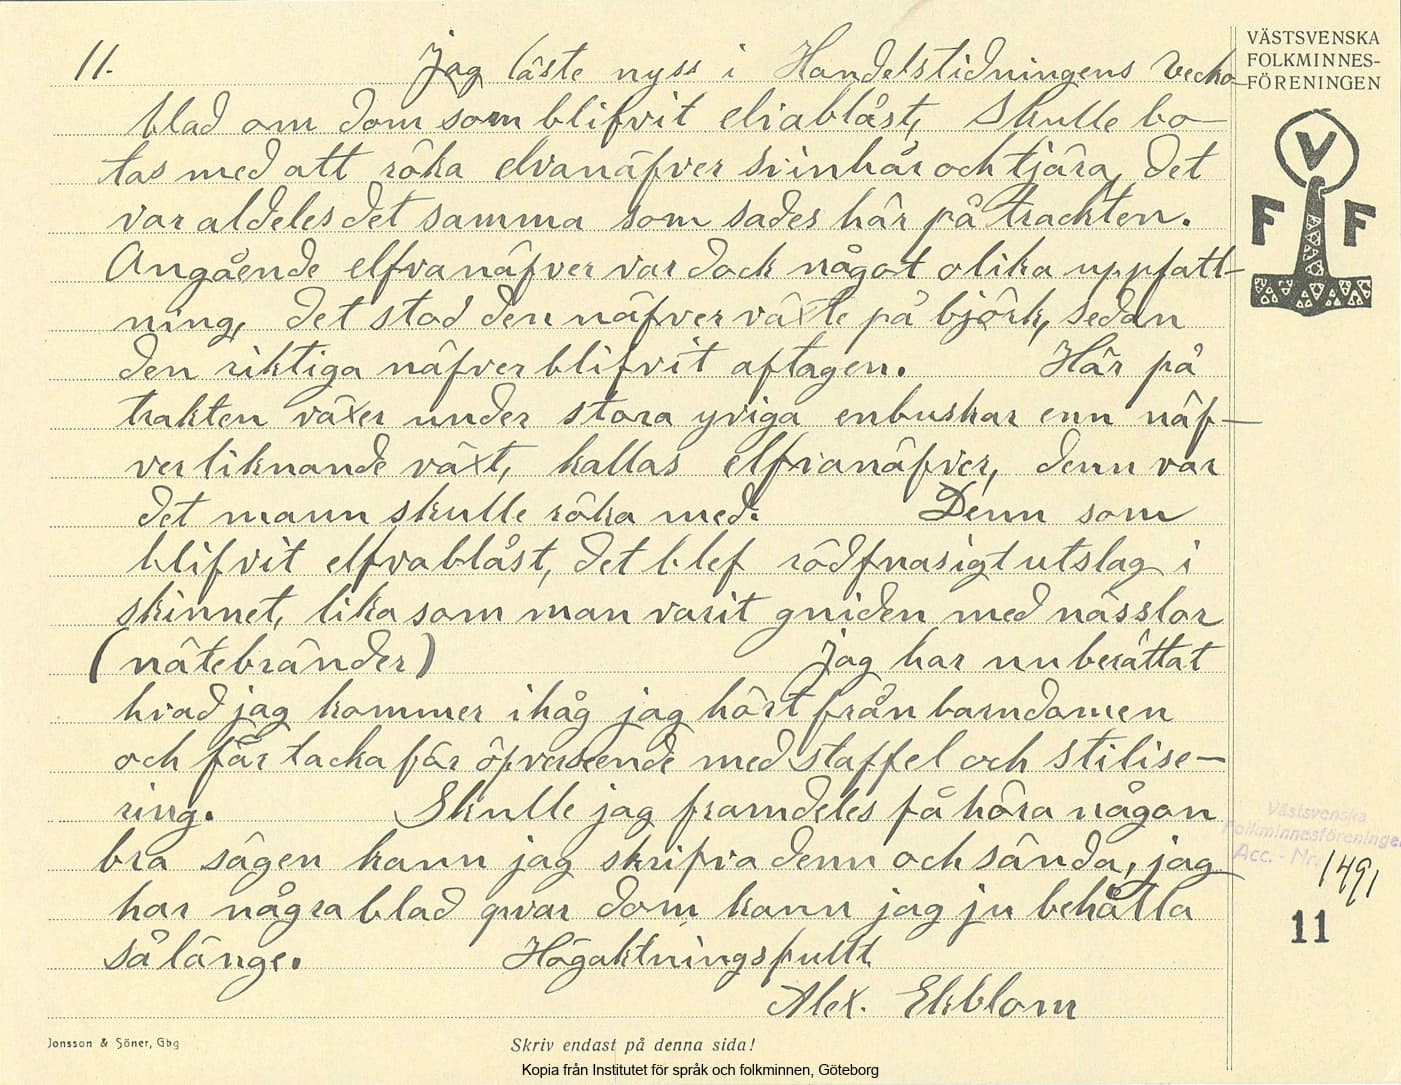 11. jag läste nyss i Handelstidningens Vecko-
blad om dom som blifvit eliablåst, Skulle bo-
tas med att röka elvanäfver svinhår och tjära, det
var aldeles det samma som sades här på trackten.
Angående elfvanäfver var dock något olika uppfatt-
ning, det stod den näfver växte på björk, sedan
den riktiga näfver blifvit aftagen. Här på
trakten växer under stora yviga enbuskar enn näf-
verliknande växt, kallas elfvanäfver, denn var
det mann skulle röka med. Denn som
blifvit elfvablåst, det blef rödfnasigt utslag i
skinnet, lika som man varit gniden med nässlor
(nätebränder) jag har nu berättat
hvad jag kommer ihåg jag hört från barndomen
och får tacka för öfverseende med staffel och stilise-
ring. Skulle jag framdeles få höra någon
bra sägen kann jag skrifva denn och sända, jag
har några blad qvar dom kann jag ju behålla
så länge. Högaktningsfullt
Alex. Ekblom
VÄSTSVENSKA
FOLKMINNES-
FÖRENINGEN
V
F F
Västsvenska
Folkminnesföreningen
Acc. - Nr. 1491
11
Jonsson & Söner, Gbg
Skriv endast på denna sida!
Kopia från Institutet för språk och folkminnen, Göteborg